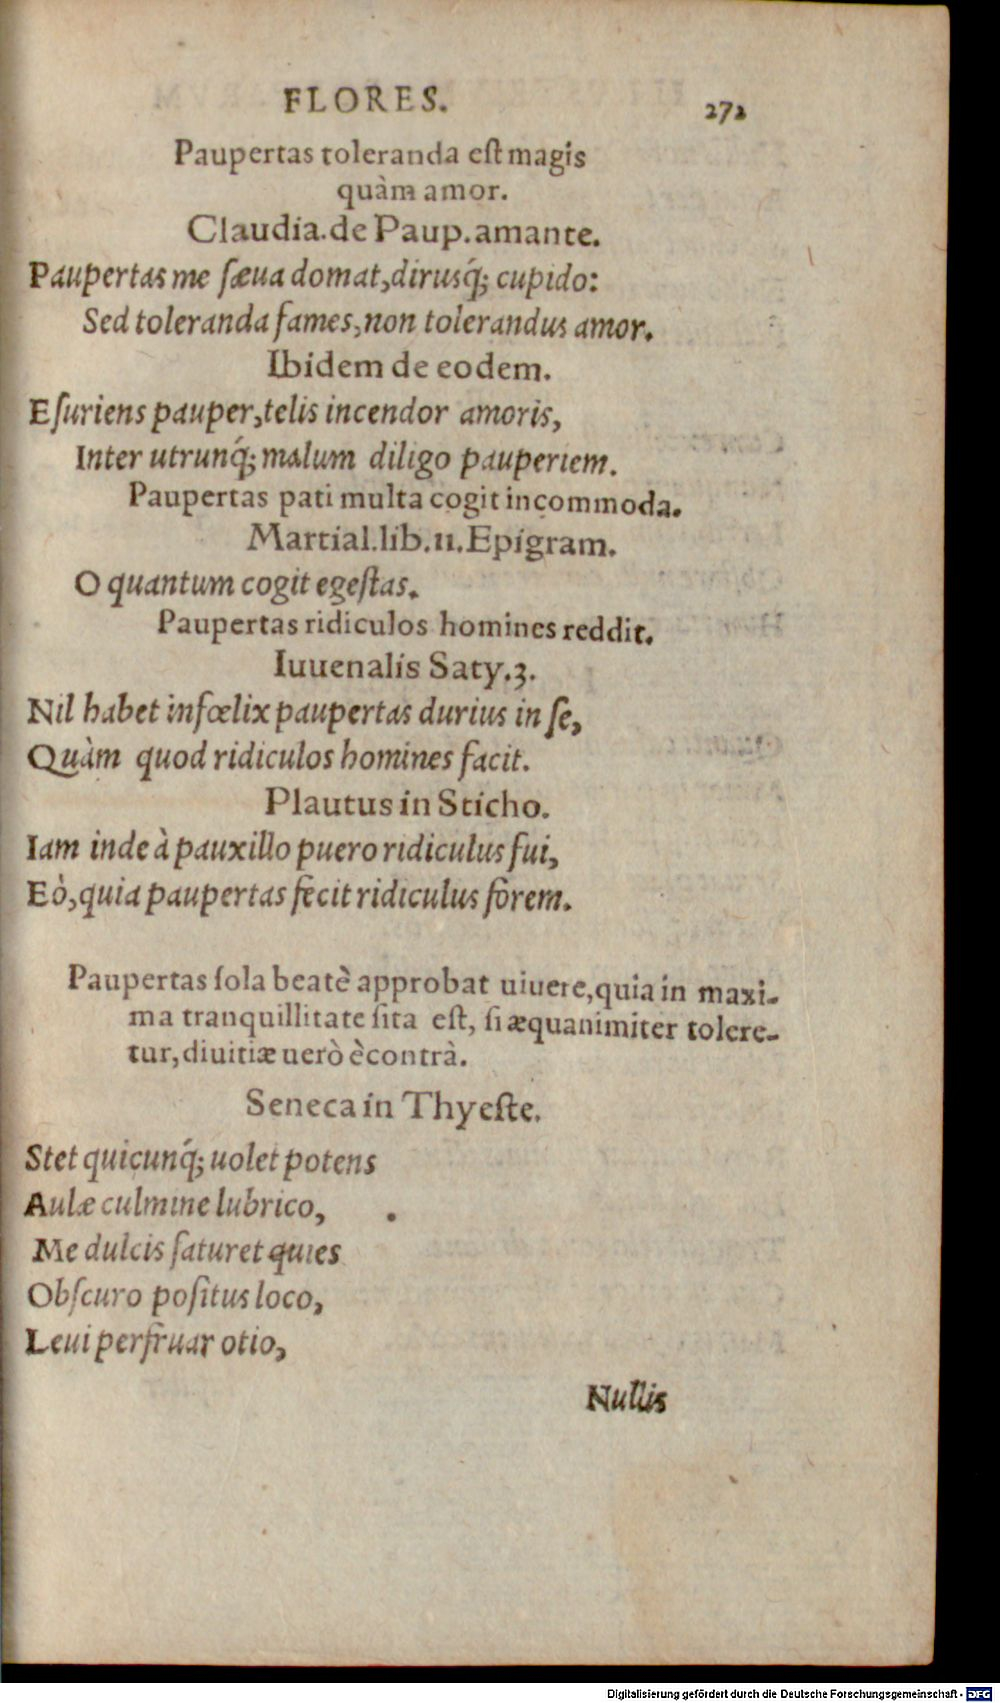 FLORES. 272
Paupertas toleranda eſt magis
quàm amor.
Claudia.de Paup.amante.
Paupertas me ſæua domat,dirusq́; cupido:
Sed toleranda fames,non tolerandus amor.
Ibidem de eodem.
Eſuriens pauper,telis incendor amoris,
Inter utrunq́; malum diligo pauperiem.
Paupertas pati multa cogit incommoda.
Martial.lib.11.Epigram.
O quantum cogit egeſtas.
Paupertas ridiculos homines reddit.
Iuuenalis Saty.3.
Nil habet infœlix paupertas durius in ſe,
Quàm quod ridiculos homines facit.
Plautus in Sticho.
Iam inde à pauxillo puero ridiculus fui,
Eò,quia paupertas fecit ridiculus forem.
Paupertas ſola beatè approbat uiuere,quia in maxi-
ma tranquillitate ſita eſt, ſi æquanimiter tolere-
tur,diuitiæ uerò ècontrà.
Seneca in Thyeſte.
Stet quicunq́; uolet potens
Aulæ culmine lubrico,
Me dulcis ſaturet quies
Obſcuro poſitus loco,
Leui perfruar otio,
Nullis
Digitalisierung gefördert durch die Deutsche Forschungsgemeinschaft - DFG